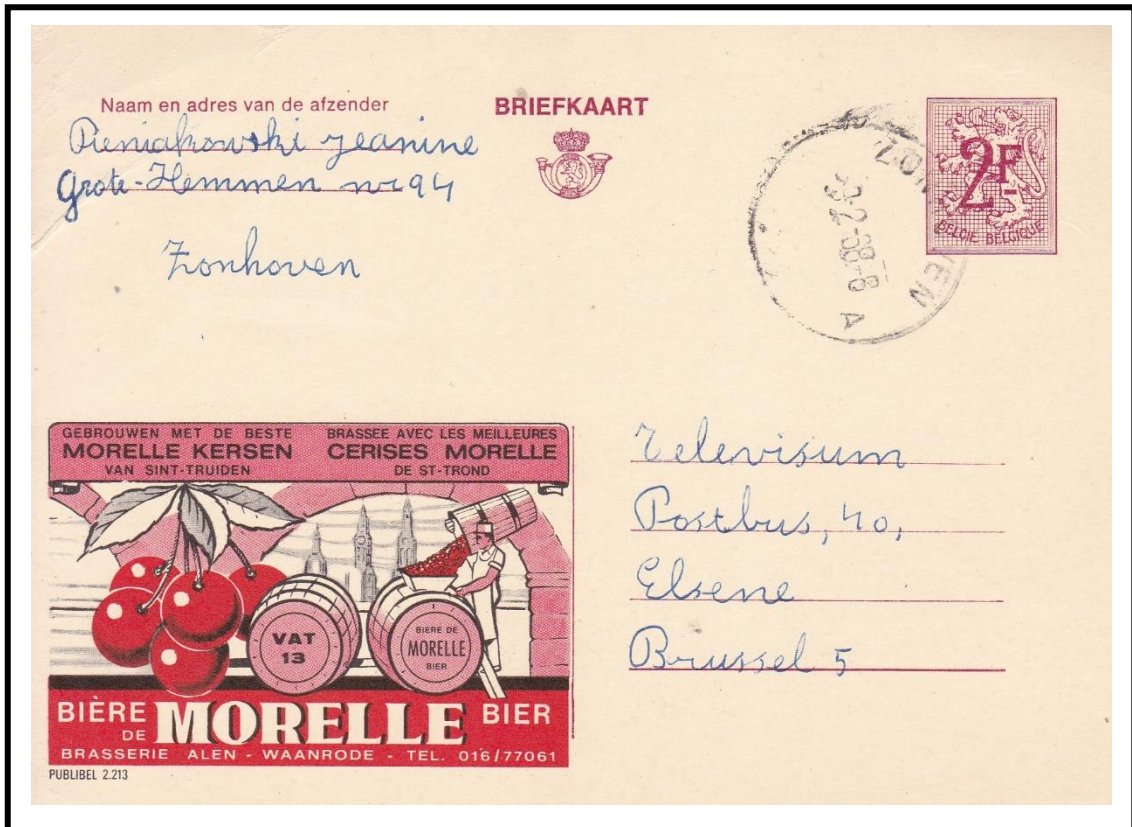 Naam en adres van de afzender
Pieniakowski Jeanine
Grote-Hemmen nr 94
Zonhoven
BRIEFKAART
2F
BELGIE BELGIQUE
-2-68-8
A
GEBROUWEN MET DE BESTE
MORELLE KERSEN
VAN SINT-TRUIDEN
BRASSEE AVEC LES MEILLEURES
CERISES MORELLE
DE ST-TROND
VAT
13
BIERE DE
MORELLE
BIER
BIÈRE DE MORELLE BIER
BRASSERIE ALEN - WAANRODE - TEL. 016/77061
PUBLIBEL 2.213
Televisum
Postbus, 40,
Elsene
Brussel 5